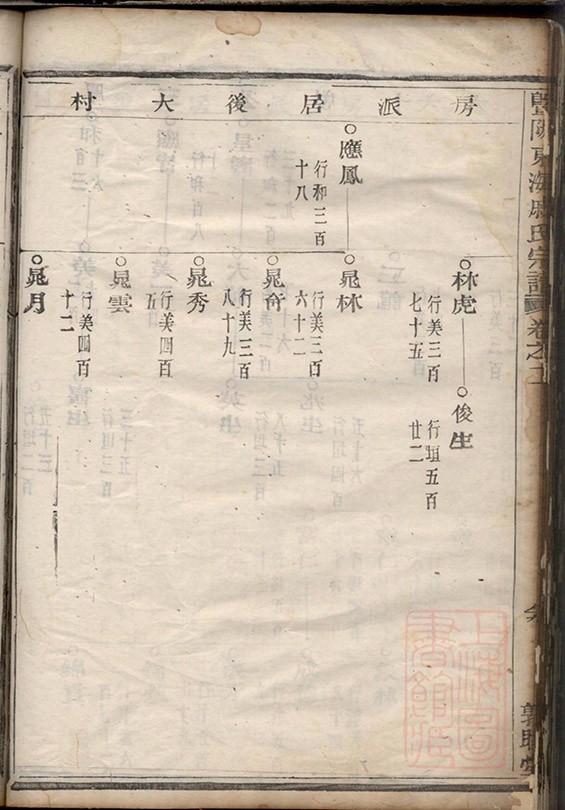 暨陽東海戚氏宗譜 卷之
房派居後大村
林虎 行美三百七十五
俊生 行垣五百廿二
應鳳 行和三百十八
晁林 行美三百六十二
晁奇 行美三百八十九
晁秀 行美四百五
晁雲 行美四百十二
晁月
上海圖書館藏